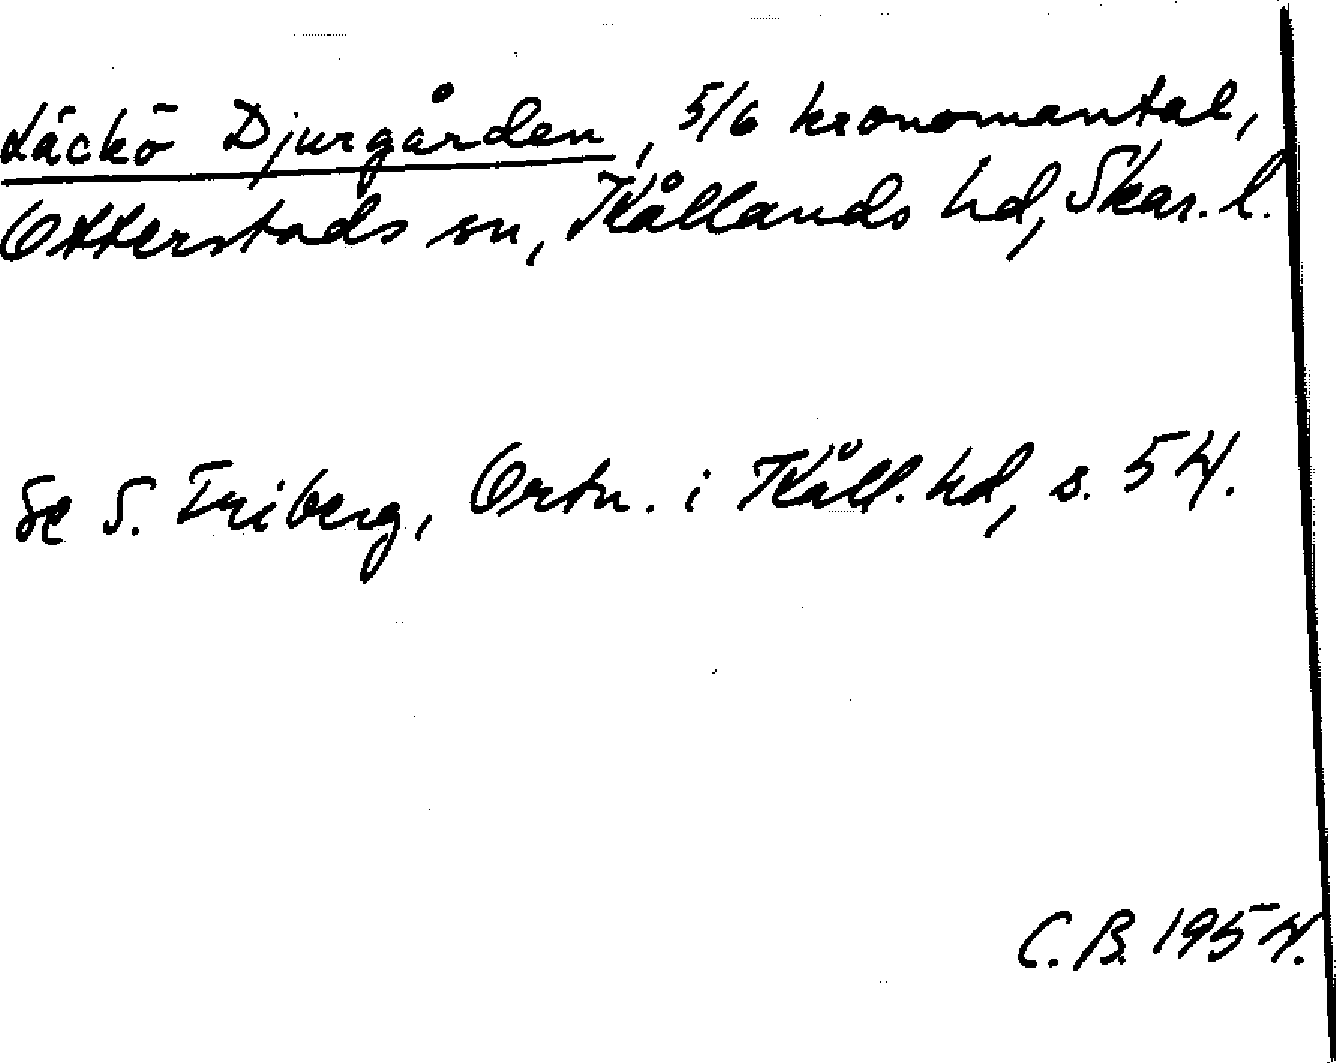 Läckö Djurgården, 5/6 kronomantal,
Otterstads sn, Kållands hd, Skar. l.
Se S. Friberg, Ortn. i Kåll. hd, s. 54.
C. B. 1954.